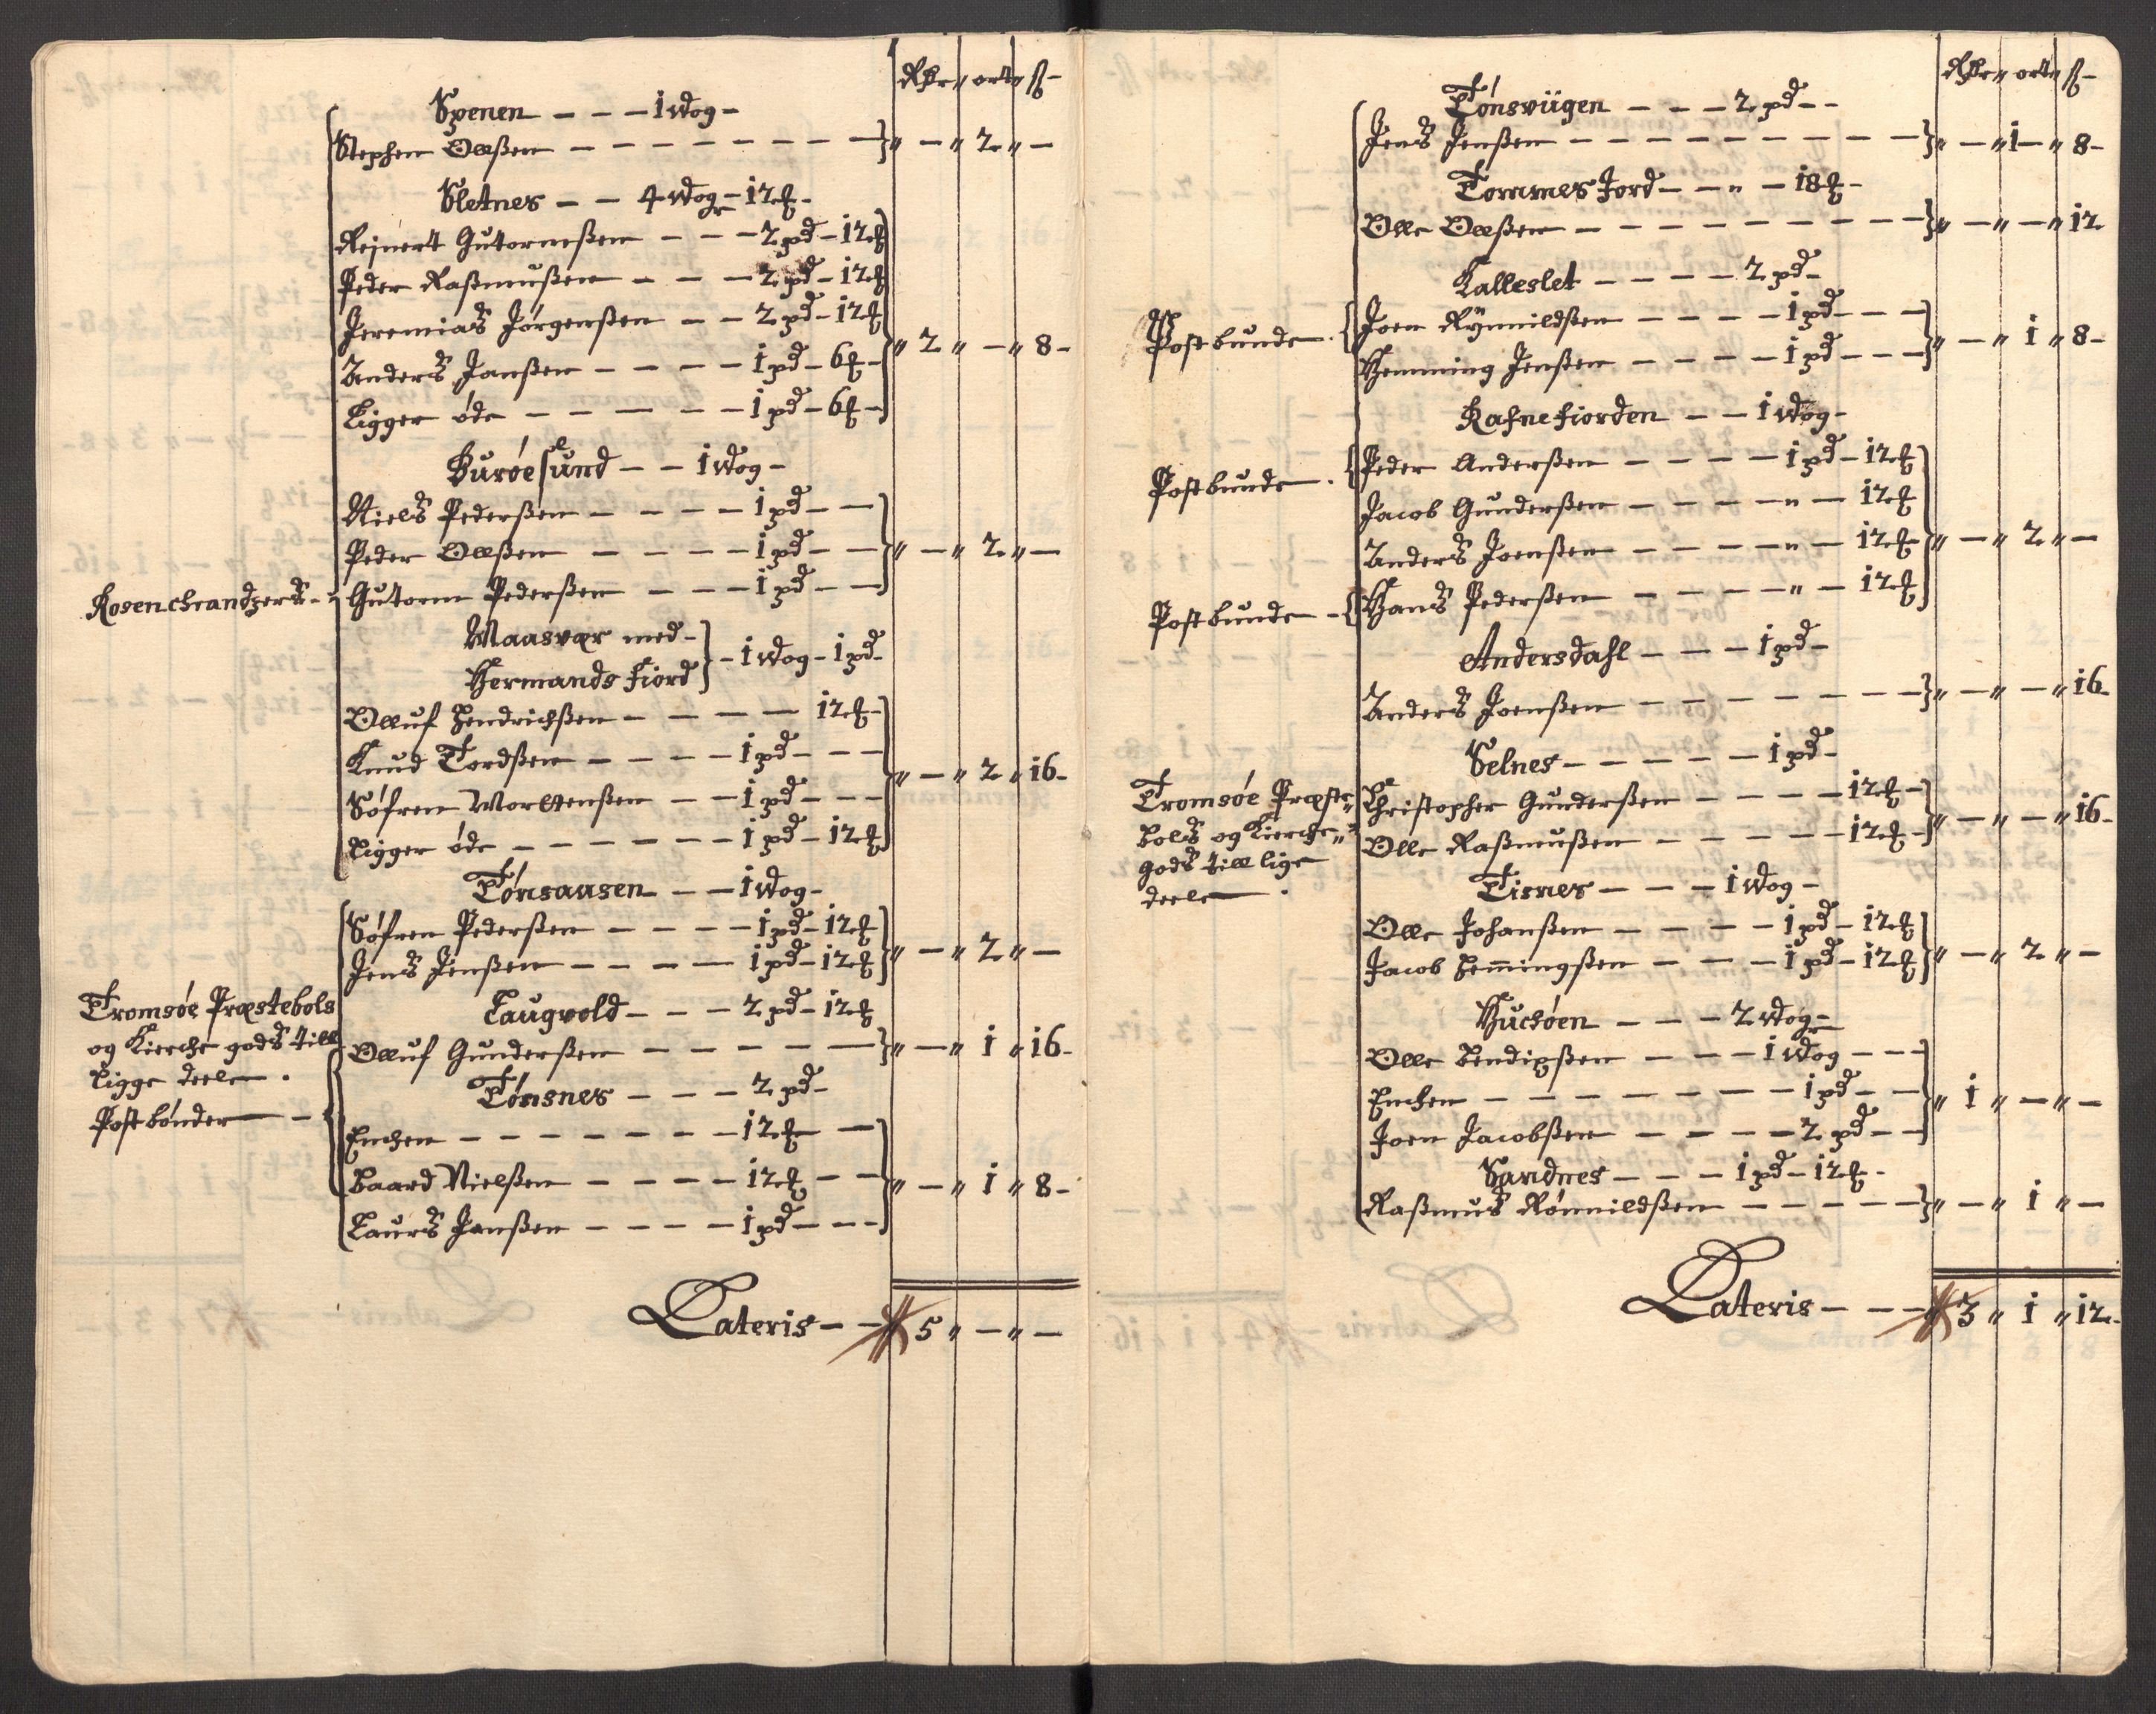 Rdr„ ort„ ſs-
Spenen - - - 1 Wog -
Stephen Olleßen - - - - - - - - - } „ - „ 2 „ -
Sletnes - - 4 Wogr - 12 ₰ -
Rejnert Gutormeßen - - - 2 pd - 12 ₰
Peder Raßmußen - - - 2 pd - 12 ₰
Jeremias Jørgenßen - - 2 pd - 12 ₰
Anders Janßen - - - - 1 pd - 6 ₰ - „ 2 „ - „ 8 -
Ligger øde - - - - - 1 pd - 6 ₰ -
Burøesund - - 1 Wog -
Niels Pederßen - - - - 1 pd - -
Peder Olleßen - - - - 1 pd - - } „ - „ 2 „ -
Rosenchrandzers - Gutorm Pederßen - - - 1 pd - -
Maasvær med -
Hermands Fiord } - 1 Wog - 1 pd -
Olluf Hendrichßen - - - - - 12 ₰ -
Knud Tordßen - - - - 1 pd - - -
Søfren Mortenßen - - 1 pd - - - } „ - „ 2 „ 16 -
Ligger øde - - - - - - 1 pd - 12 ₰
Tønsaasen - - 1 Wog -
Søfren Pederßen - - - - 1 pd - 12 ₰
Jens Jenßen - - - - 1 pd - 12 ₰ } „ - „ 2 „ -
Tromsøe Præstebols
og Kierche gods till
ligge deele .
Postbønder - -
Laugvold - - - 2 pd - 12 ₰
Olluf Gunderßen - - - - - - } „ - „ 1 „ 16 -
Tønsnes - - - 2 pd -
Enchen - - - - - - - 12 ₰ - -
Baard Nielßen - - - - 12 ₰ - - } „ - „ 1 „ 8 -
Laurs Janßen - - - - 1 pd - - -
Lateris - - 5 „ - „ -
Rdr„ ort„ ſs-
Tønsviigen - - - 2 pd - -
Jens Jenßen - - - - - - - - - } „ - „ 1 - „ 8 -
Tommes Jord - - „ - 18 ₰ -
Olle Olleßen - - - - - - - - - } „ - „ - „ 12
Kalleslet - - - - 2 pd -
Postbunde . Joen Rønnildßen - - - - 1 pd - - -
Hemming Jenßen - - - - 1 pd - - - } „ - „ 1 „ 8 -
Rafnefiorden - - 1 Wog -
Postbunde . Peder Anderßen - - - - 1 pd - 12 ₰
Jacob Gunderßen - - - - „ - 12 ₰
Anders Joenßen - - - - „ - 12 ₰ } „ - „ 2 „ -
Postbunde - Hans Pederßen - - - - „ - 12 ₰
Andersdahl - - - 1 pd -
Anders Joenßen - - - - - - - - } „ - „ - „ 16 -
Selnes - - - - - 1 pd -
Tromsøe Præste„
bols og Kierche„
gods till lige
deele .
Christopher Gunderßen - - - - 12 ₰ -
Olle Raßmußen - - - - - 12 ₰ - } „ - „ - „ 16 -
Tisnes - - - 1 Wog -
Olle Johanßen - - - - 1 pd - 12 ₰
Jacob Hemingßen - - - 1 pd - 12 ₰ } „ - „ 2 „ -
Huchøen - - - 2 Wogr -
Olle Bendixßen - - - 1 Wog - - -
Enchen - - - - - - - - 1 pd - - } „ 1 „ - „ -
Joen Jacobßen - - - - - 2 pd - -
Sandnes - - - 1 pd - 12 ₰ -
Raßmus Rønnildßen - - - - - } „ - „ 1 „ -
Lateris - - - 3 „ 1 „ 12 -